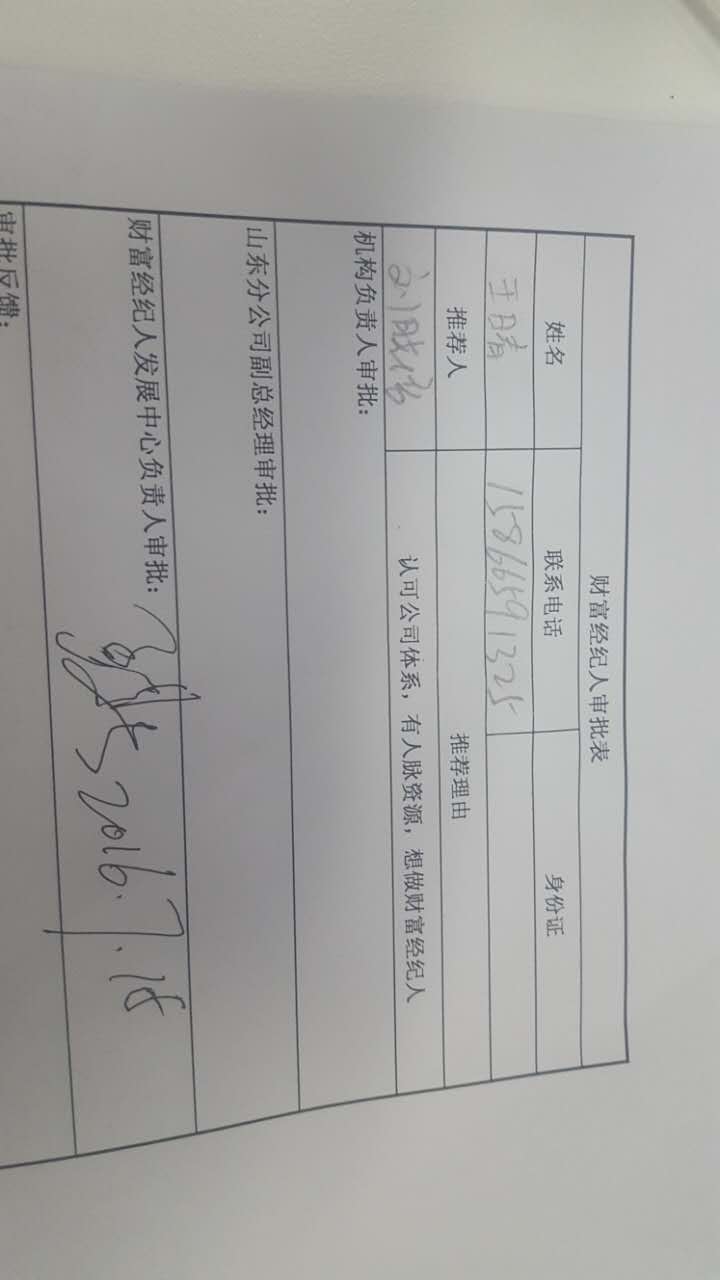 财富经纪人审批表
姓名 联系电话 身份证
15866591325
推荐人 推荐理由
认可公司体系，有人脉资源，想做财富经纪人
机构负责人审批：
山东分公司副总经理审批：
财富经纪人发展中心负责人审批： 2016.7.18
审批反馈：